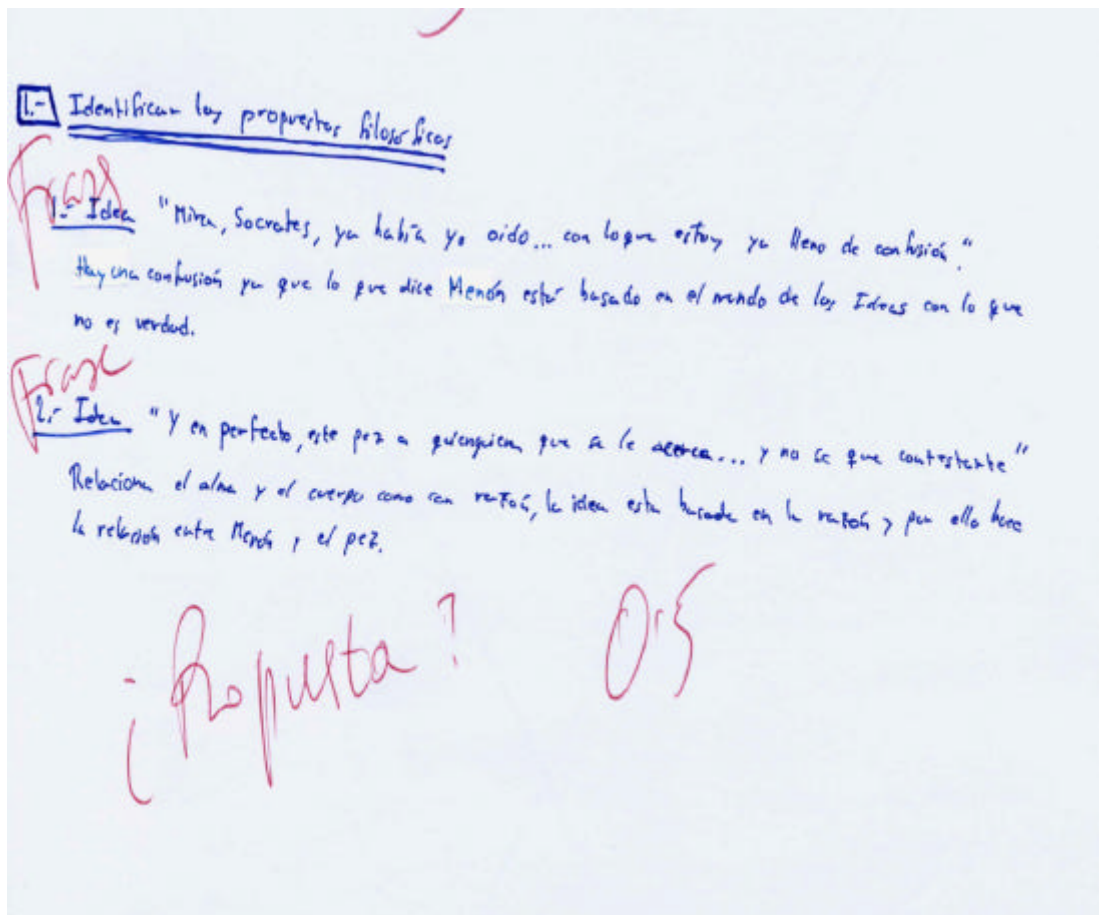 1.- Identificar las propuestas filosóficas
Frase
1.- Idea "Mira, Socrates, ya había yo oido... con lo que estoy ya lleno de confusión."
Hay una confusión ya que lo que dice Menón está basado en el mundo de las Ideas con lo que
no es verdad.
Frase
2.- Idea "Y en perfecto, este pez a quienquiera que se le acerca... y no se que contestarte"
Relaciona el alma y el cuerpo como con razón, la idea esta basada en la razón y por ello hace
la relación entre Menón y el pez.
¿Propuesta? 0'5